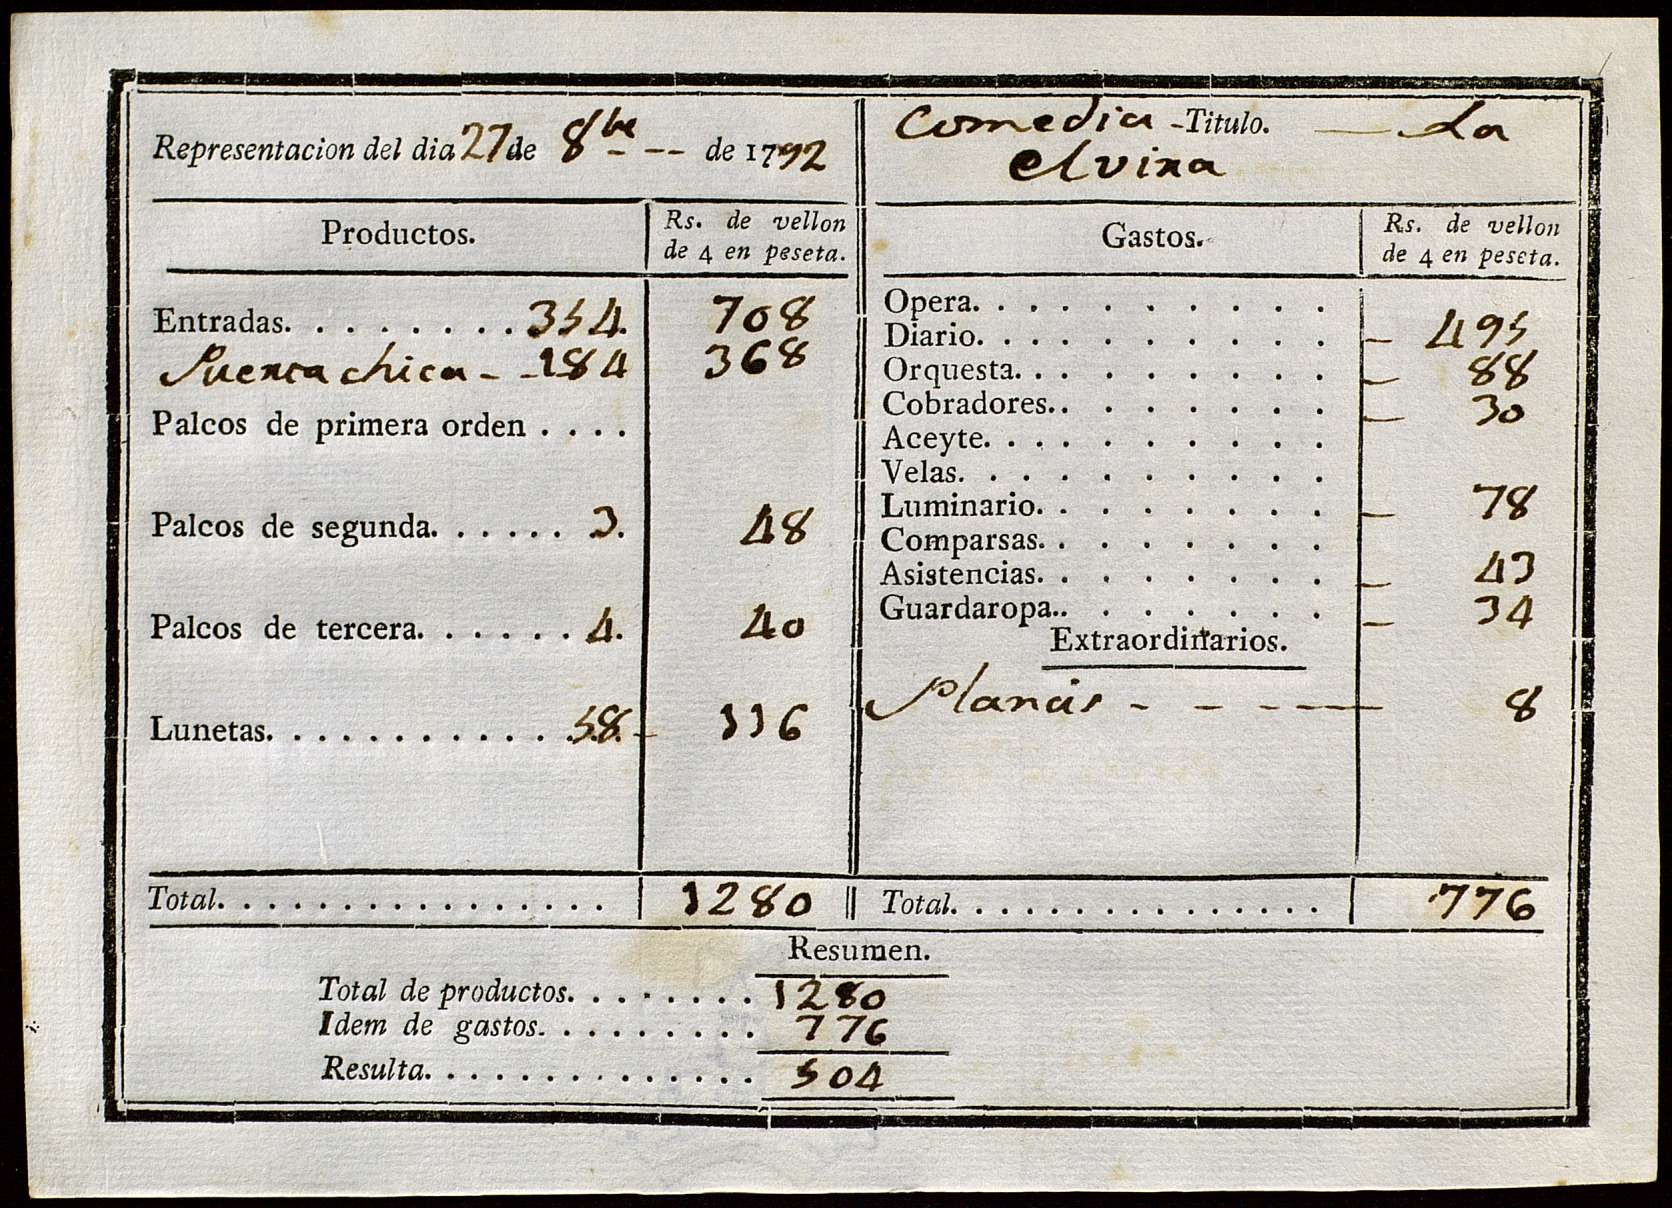 Representacion del dia 27 de 8bre - -- de 1792
Comedia - Titulo. — La
elvira
Productos. Rs. de vellon
de 4 en peseta.
Gastos. Rs. de vellon
de 4 en peseta.
Entradas. . . . . . . . 354. 708
Puerta chica - - 184 368
Palcos de primera orden . . . .
Palcos de segunda. . . . . . 3. 48
Palcos de tercera. . . . . . 4. 40
Lunetas. . . . . . . . . . . . 58. - 116
Opera. . . . . . . . . .
Diario. . . . . . . . . . — 495
Orquesta. . . . . . . . — 88
Cobradores. . . . . . . . — 30
Aceyte. . . . . . . . . .
Velas. . . . . . . . . .
Luminario. . . . . . . . — 78
Comparsas. . . . . . . .
Asistencias. . . . . . . . — 43
Guardaropa. . . . . . . . — 34
Extraordinarios.
- - - — 8
Total. . . . . . . . . . . . . . . . 1280
Total. . . . . . . . . . . . . . . . 776
Resumen.
Total de productos. . . . . . . . . 1280
Idem de gastos. . . . . . . . . . 776
Resulta. . . . . . . . . . . . . . . 504